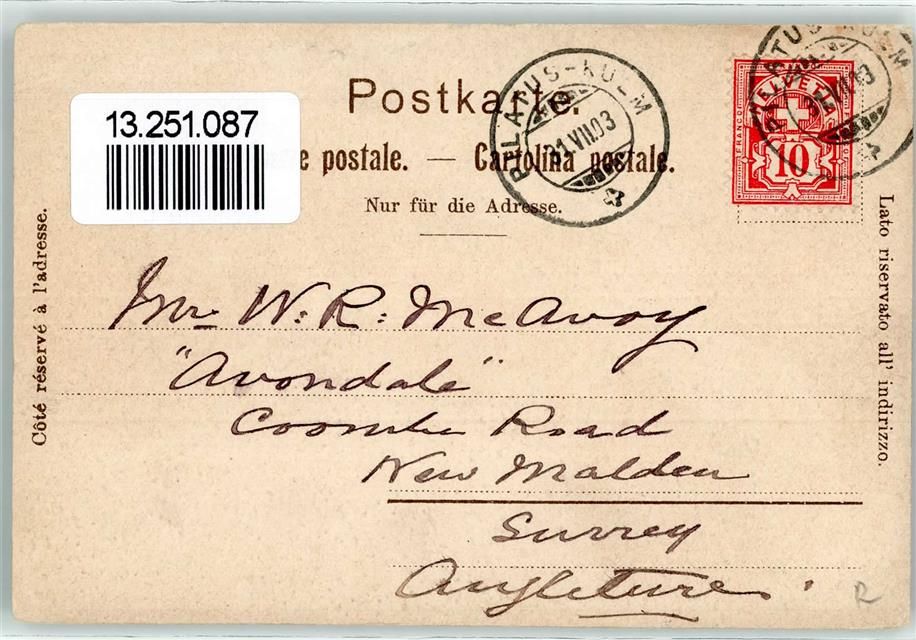 13.251.087
Postkarte.
e postale. — Cartolina postale.
Nur für die Adresse.
PILATUS-KULM
31.VII.03
HELVETIA
FRANCO
10
Côté réservé à l'adresse.
Lato riservato all' indirizzo.
Mr W. R. McAvoy
"Avondale"
Coombe Road
New Malden
Surrey
Angleterre.
R